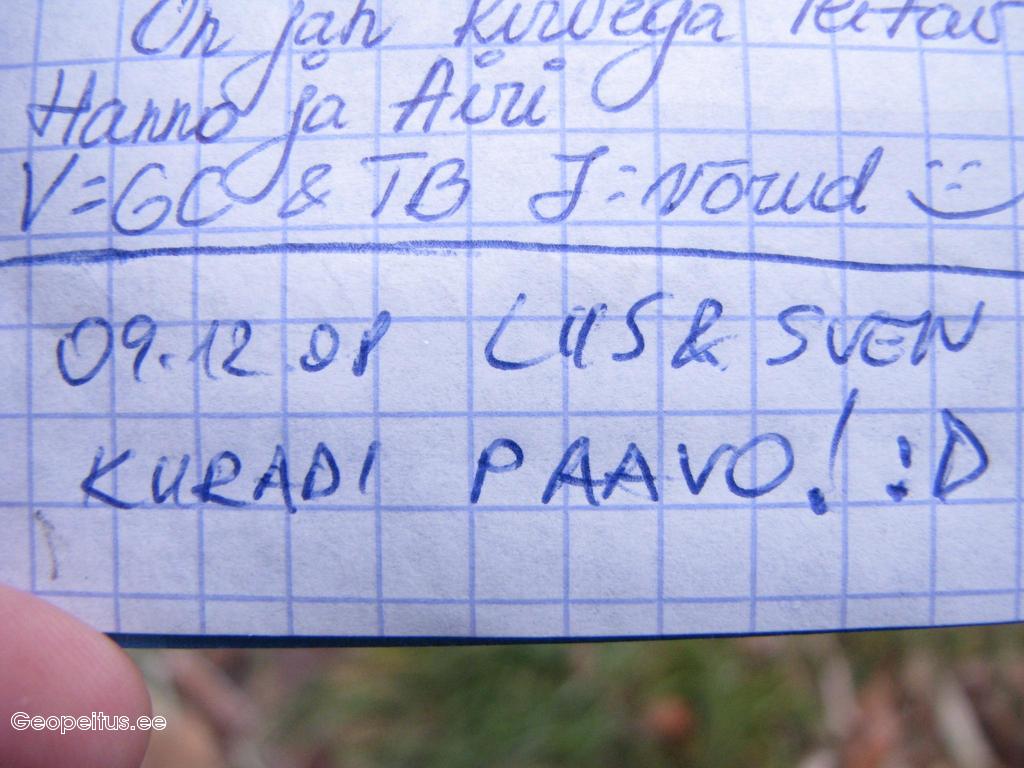 On jah kirvega leitav
Hanno ja Airi
V=GC & TB J=võrud
09.12.08 LIIS & SVEN
KURADI PAAVO! :D
Geopeitus.ee